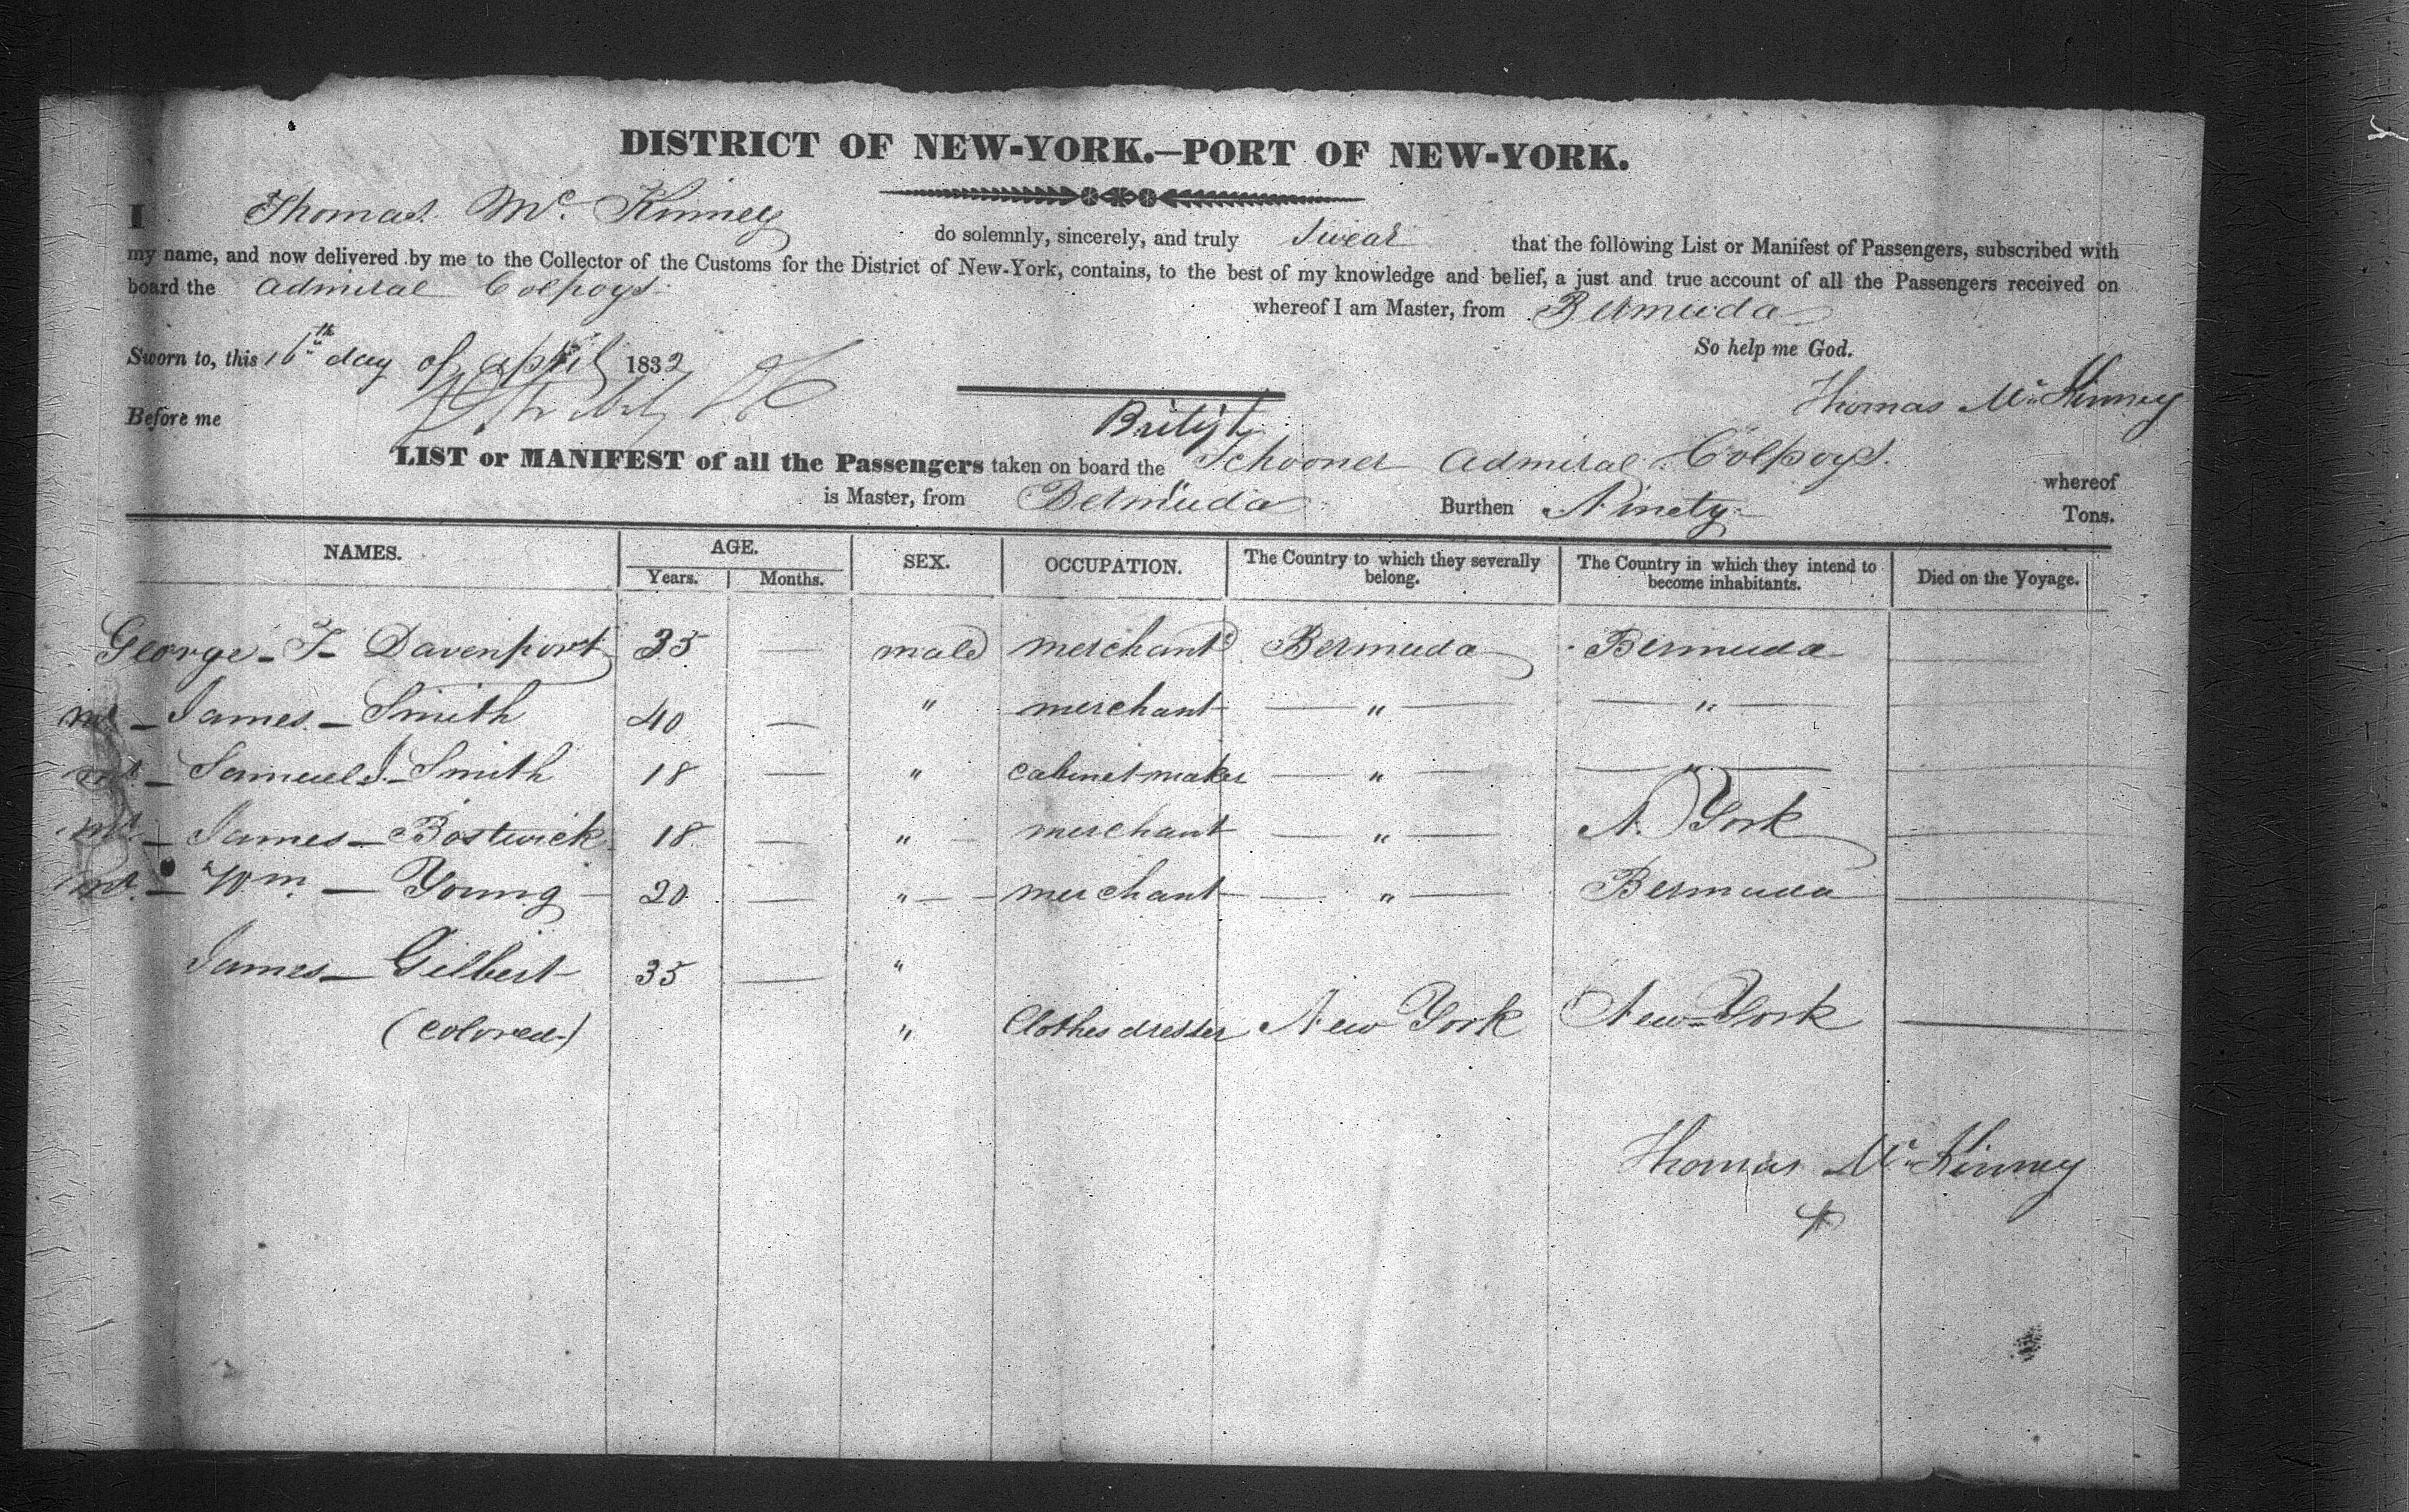 DISTRICT OF NEW-YORK.—PORT OF NEW-YORK.
I Thomas Mc. Kinney do solemnly, sincerely, and truly swear that the following List or Manifest of Passengers, subscribed with
my name, and now delivered by me to the Collector of the Customs for the District of New-York, contains, to the best of my knowledge and belief, a just and true account of all the Passengers received on
board the Admiral Colpoys whereof I am Master, from Bermuda
So help me God.
Sworn to, this 16th day of april 1832
Thomas Mc Kinney
Before me
British
LIST or MANIFEST of all the Passengers taken on board the Schooner Admiral Colpoys. whereof
is Master, from Bermuda Burthen Ninety Tons.
NAMES. AGE. SEX. OCCUPATION. The Country to which they severally belong. The Country in which they intend to become inhabitants. Died on the Voyage.
Years. Months.
George - T - Davenport 35 — male merchant Bermuda Bermuda —
Mr - James - Smith 40 — " merchant — " — — " —
Mr - Samuel J - Smith 18 — " cabinet maker — " — — " — —
Mr - James - Bostwick 18 — " merchant — " — N. York —
Mr - Wm - Young 20 — " merchant — " — Bermuda —
James - Gilbert 35 — "
(colored) " Clothes dresser New York New-York —
Thomas Mc Kinney